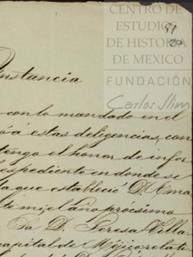 CENTRO DE
ESTUDIOS
DE HISTORIA
DE MÉXICO
FUNDACIÓN
Carlos Slim
nstancia
con lo mandado en el
estas diligencias, con
tengo el honor de infor
espediente en donde se
que estableció D. Ama
te mil año próximo
D. Teresa Villa
capital de Méjico, relata